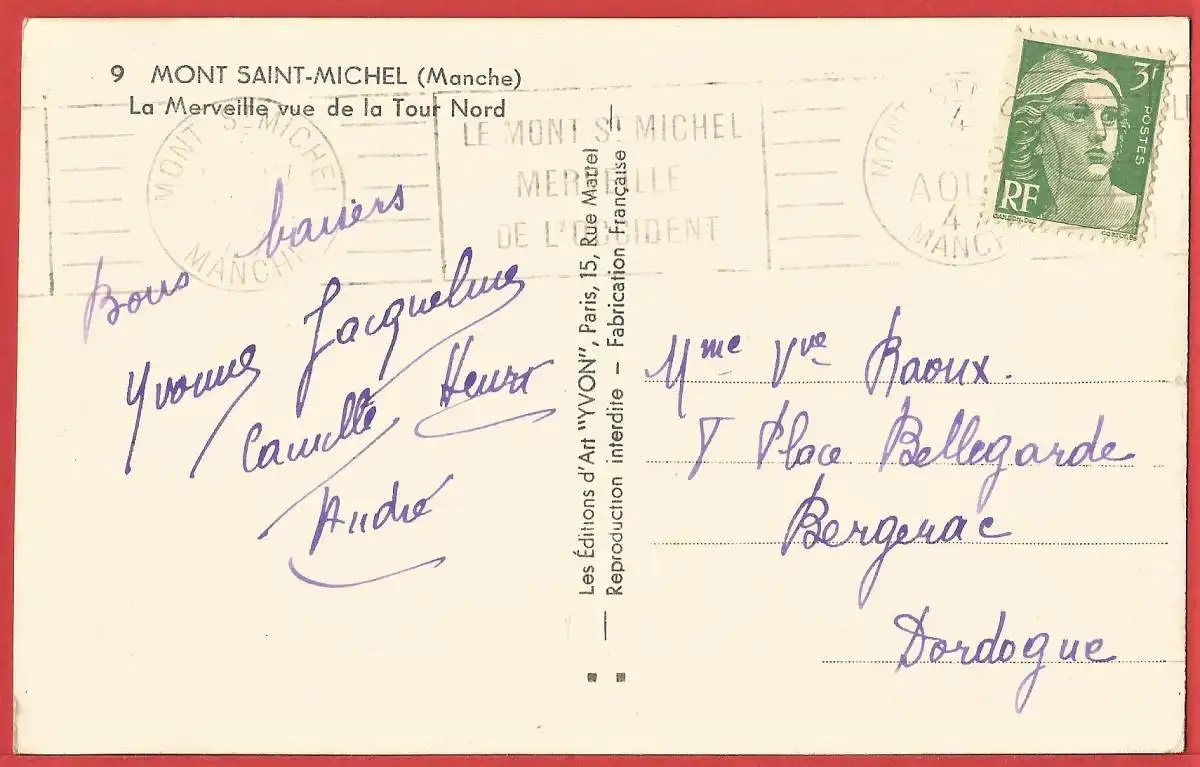 9 MONT SAINT-MICHEL (Manche)
La Merveille vue de la Tour Nord
MONT St MICHEL
MANCHE
LE MONT St MICHEL
MERVEILLE
DE L'OCCIDENT
MONT
4
AOU
4
MANCH
3F
POSTES
RF
Bons baisers
Yvonne Jacqueline
Camille Henri
André
Les Éditions d'Art "YVON", Paris, 15, Rue Martel
Reproduction interdite — Fabrication Française
Mme Vve Raoux.
Place Bellegarde
Bergerac
Dordogne